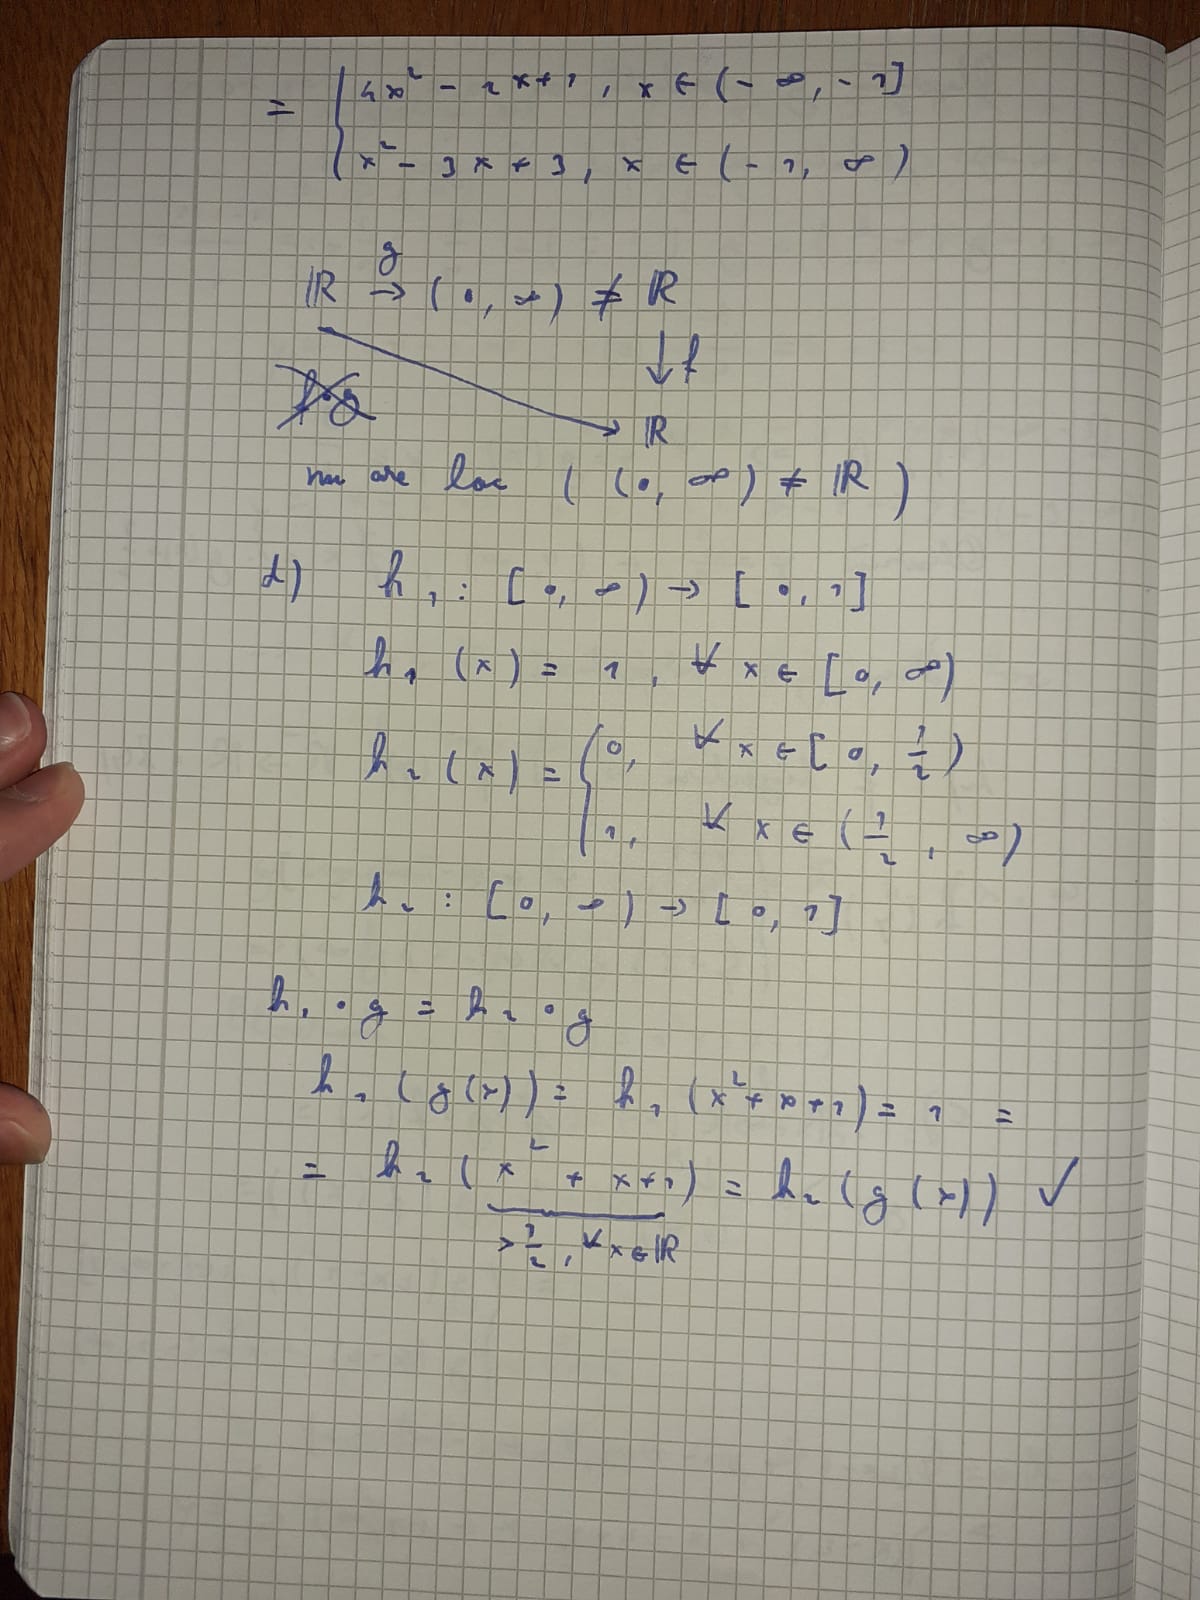 = { 4x² - 2x+1, x ∈ (-∞, -1]
x² - 3x + 3, x ∈ (-1, ∞)
ℝ →g (0, ∞) ≠ ℝ
↓ f
f∘g
ℝ
nu are loc ( (0, ∞) ≠ ℝ )
d) h₁ : [0, ∞) → [0, 1]
h₁ (x) = 1, ∀ x ∈ [0, ∞)
h₂ (x) = { 0, ∀ x ∈ [0, 1/2)
1, ∀ x ∈ (1/2, ∞)
h₂ : [0, ∞) → [0, 1]
h₁ ∘ g = h₂ ∘ g
h₁ (g(x)) = h₁ (x² + x + 1) = 1 =
= h₂ (x² + x+1) = h₂ (g(x)) ✓
> 1/2, ∀ x ∈ ℝ